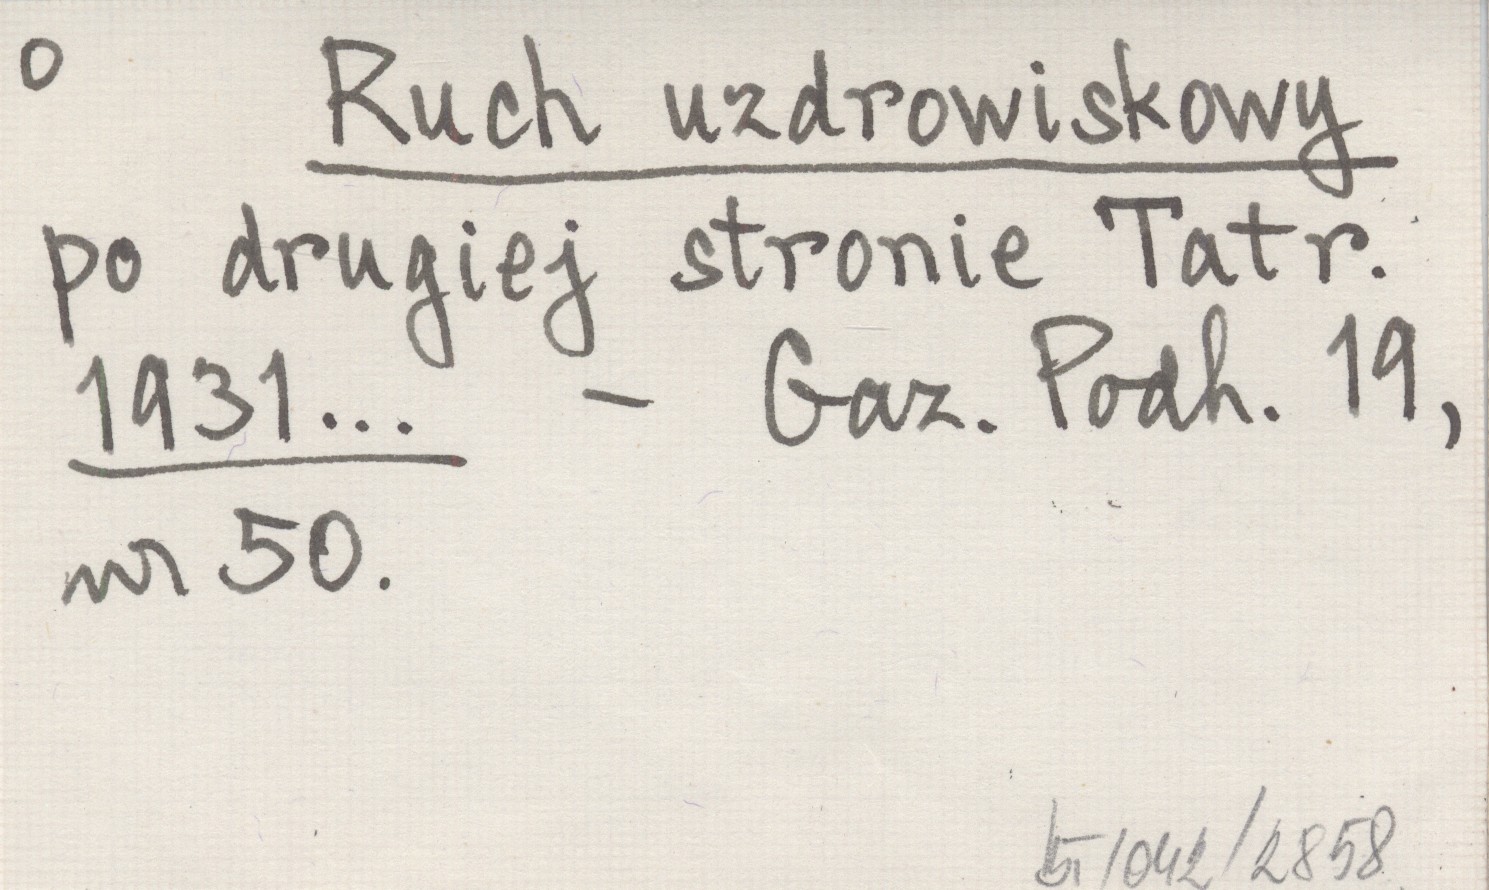 o Ruch uzdrowiskowy
po drugiej stronie Tatr.
1931... – Gaz. Podh. 19,
nr 50.
/042/2858